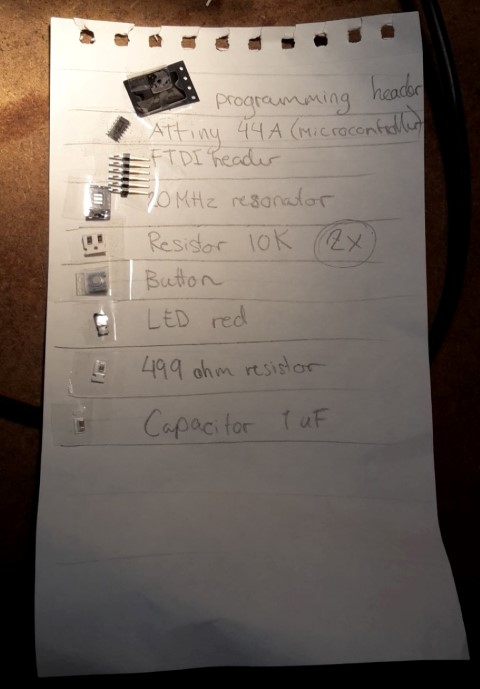 programming header
ATtiny 44A (microcontroller)
FTDI header
20MHz resonator
Resistor 10K 2x
Button
LED red
499 ohm resistor
Capacitor 1uF